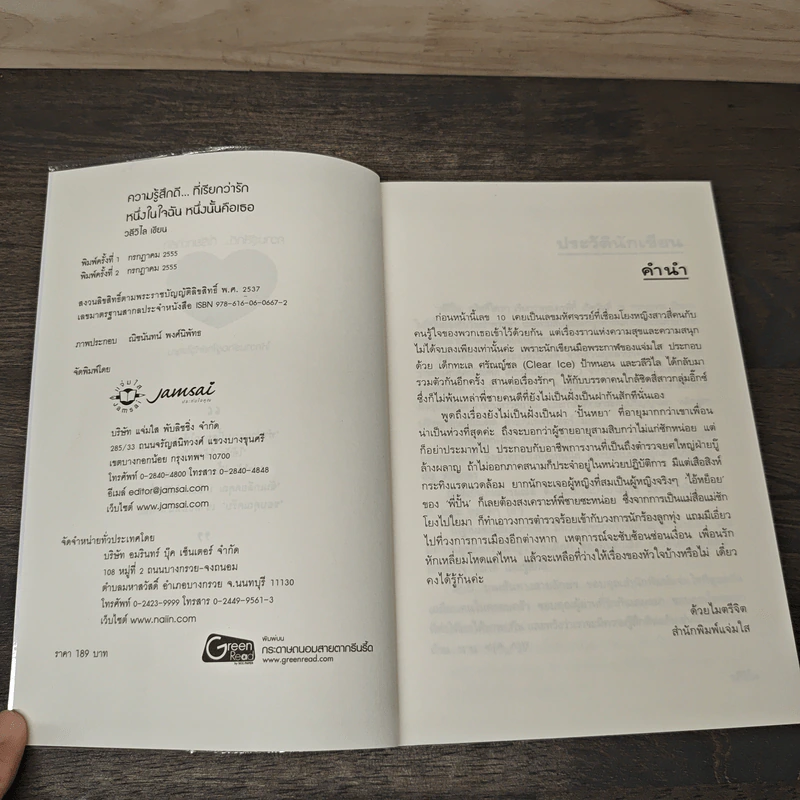 ความรู้สึกดี... ที่เรียกว่ารัก
หนึ่งในใจฉัน หนึ่งนั้นคือเธอ
วลีวิไล เขียน
พิมพ์ครั้งที่ 1 กรกฎาคม 2555
พิมพ์ครั้งที่ 2 กรกฎาคม 2555
สงวนลิขสิทธิ์ตามพระราชบัญญัติลิขสิทธิ์ พ.ศ. 2537
เลขมาตรฐานสากลประจำหนังสือ ISBN 978-616-06-0667-2
ภาพประกอบ ณิชนันทน์ พงศ์นิพัทธ
จัดพิมพ์โดย
แจ่มใส
Jamsai
Jamsai
บริษัท แจ่มใส พับลิชชิ่ง จำกัด
285/33 ถนนจรัญสนิทวงศ์ แขวงบางขุนศรี
เขตบางกอกน้อย กรุงเทพฯ 10700
โทรศัพท์ 0-2840-4800 โทรสาร 0-2840-4848
อีเมล์ editor@jamsai.com
เว็บไซต์ www.jamsai.com
จัดจำหน่ายทั่วประเทศโดย
บริษัท อมรินทร์ บุ๊ค เซ็นเตอร์ จำกัด
108 หมู่ที่ 2 ถนนบางกรวย-จงถนอม
ตำบลมหาสวัสดิ์ อำเภอบางกรวย จ.นนทบุรี 11130
โทรศัพท์ 0-2423-9999 โทรสาร 0-2449-9561-3
เว็บไซต์ www.naiin.com
ราคา 189 บาท
Green Read
พิมพ์บน
กระดาษถนอมสายตากรีนรี้ด
www.greenread.com
ประวัตินักเขียน
คำนำ
ก่อนหน้านี้เลข 10 เคยเป็นเลขมหัศจรรย์ที่เชื่อมโยงหญิงสาวสี่คนกับ
คนรู้ใจของพวกเธอเข้าไว้ด้วยกัน แต่เรื่องราวแห่งความสุขและความสนุก
ไม่ได้จบลงเพียงเท่านั้นค่ะ เพราะนักเขียนมือพระกาฬของแจ่มใส ประกอบ
ด้วย เด็กทะเล ศรัณญ์ชล (Clear Ice) ป้าหนอน และวลีวิไล ได้กลับมา
รวมตัวกันอีกครั้ง สานต่อเรื่องรักๆ ให้กับบรรดาคนใกล้ชิดสี่สาวกลุ่มอิ๊กซ์
ซึ่งก็ไม่พ้นเหล่าพี่ชายคนดีที่ยังไม่เป็นฝั่งเป็นฝากันสักทีนั่นเอง
พูดถึงเรื่องยังไม่เป็นฝั่งเป็นฝา 'ปั้นหยา' ที่อายุมากกว่าเขาเพื่อน
น่าเป็นห่วงที่สุดค่ะ ถึงจะบอกว่าผู้ชายอายุสามสิบกว่าไม่แก่ซักหน่อย แต่
ก็อย่าประมาทไป ประกอบกับอาชีพการงานที่เป็นถึงตำรวจยศใหญ่ฝ่ายบู๊
ล้างผลาญ ถ้าไม่ออกภาคสนามก็ประจำอยู่ในหน่วยปฏิบัติการ มีแต่เสือสิงห์
กระทิงแรดแวดล้อม ยากนักจะเจอผู้หญิงที่สมเป็นผู้หญิงจริงๆ 'ไอ้หย็อย'
ของ 'พี่ปั้น' ก็เลยต้องสงเคราะห์พี่ชายซะหน่อย ซึ่งจากการเป็นแม่สื่อแม่ชัก
โยงไปใยมา ก็ทำเอาวงการตำรวจร้อยเข้ากับวงการนักร้องลูกทุ่ง แถมมีเอี่ยว
ไปที่วงการการเมืองอีกต่างหาก เหตุการณ์จะซับซ้อนซ่อนเงื่อน เพื่อนรัก
หักเหลี่ยมโหดแค่ไหน แล้วจะเหลือที่ว่างให้เรื่องของหัวใจบ้างหรือไม่ เดี๋ยว
คงได้รู้กันค่ะ
ด้วยไมตรีจิต
สำนักพิมพ์แจ่มใส